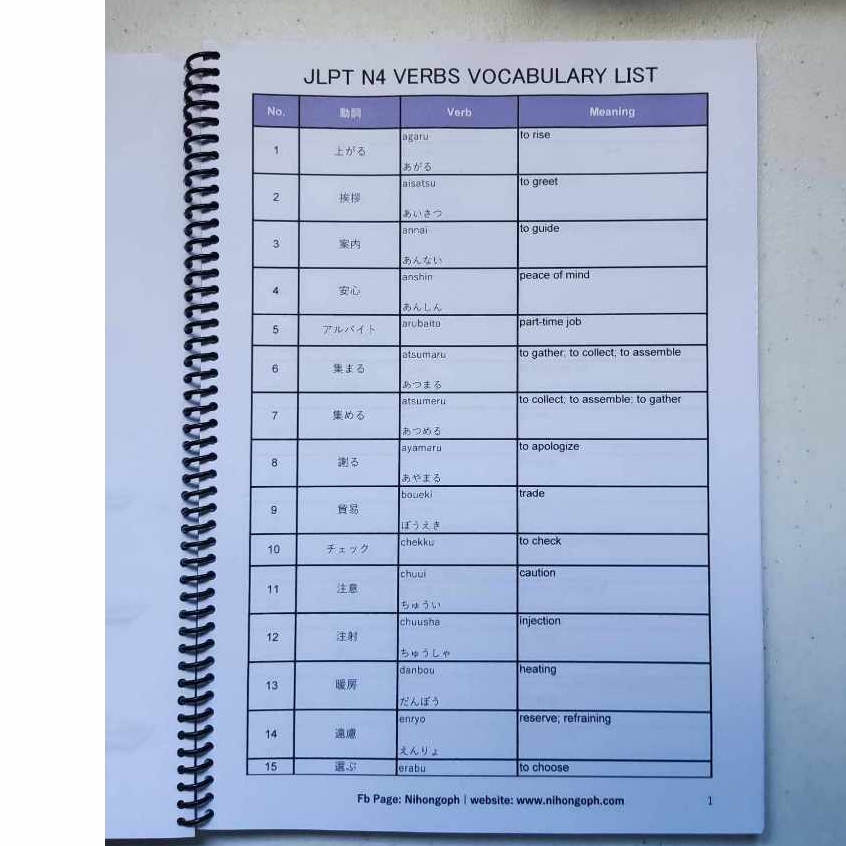 JLPT N4 VERBS VOCABULARY LIST
No. 動詞 Verb Meaning
1 上がる agaru to rise
あがる
2 挨拶 aisatsu to greet
あいさつ
3 案内 annai to guide
あんない
4 安心 anshin peace of mind
あんしん
5 アルバイト arubaito part-time job
6 集まる atsumaru to gather; to collect; to assemble
あつまる
7 集める atsumeru to collect; to assemble; to gather
あつめる
8 謝る ayamaru to apologize
あやまる
9 貿易 boueki trade
ぼうえき
10 チェック chekku to check
11 注意 chuui caution
ちゅうい
12 注射 chuusha injection
ちゅうしゃ
13 暖房 danbou heating
だんぼう
14 遠慮 enryo reserve; refraining
えんりょ
15 選ぶ erabu to choose
Fb Page: Nihongoph | website: www.nihongoph.com 1